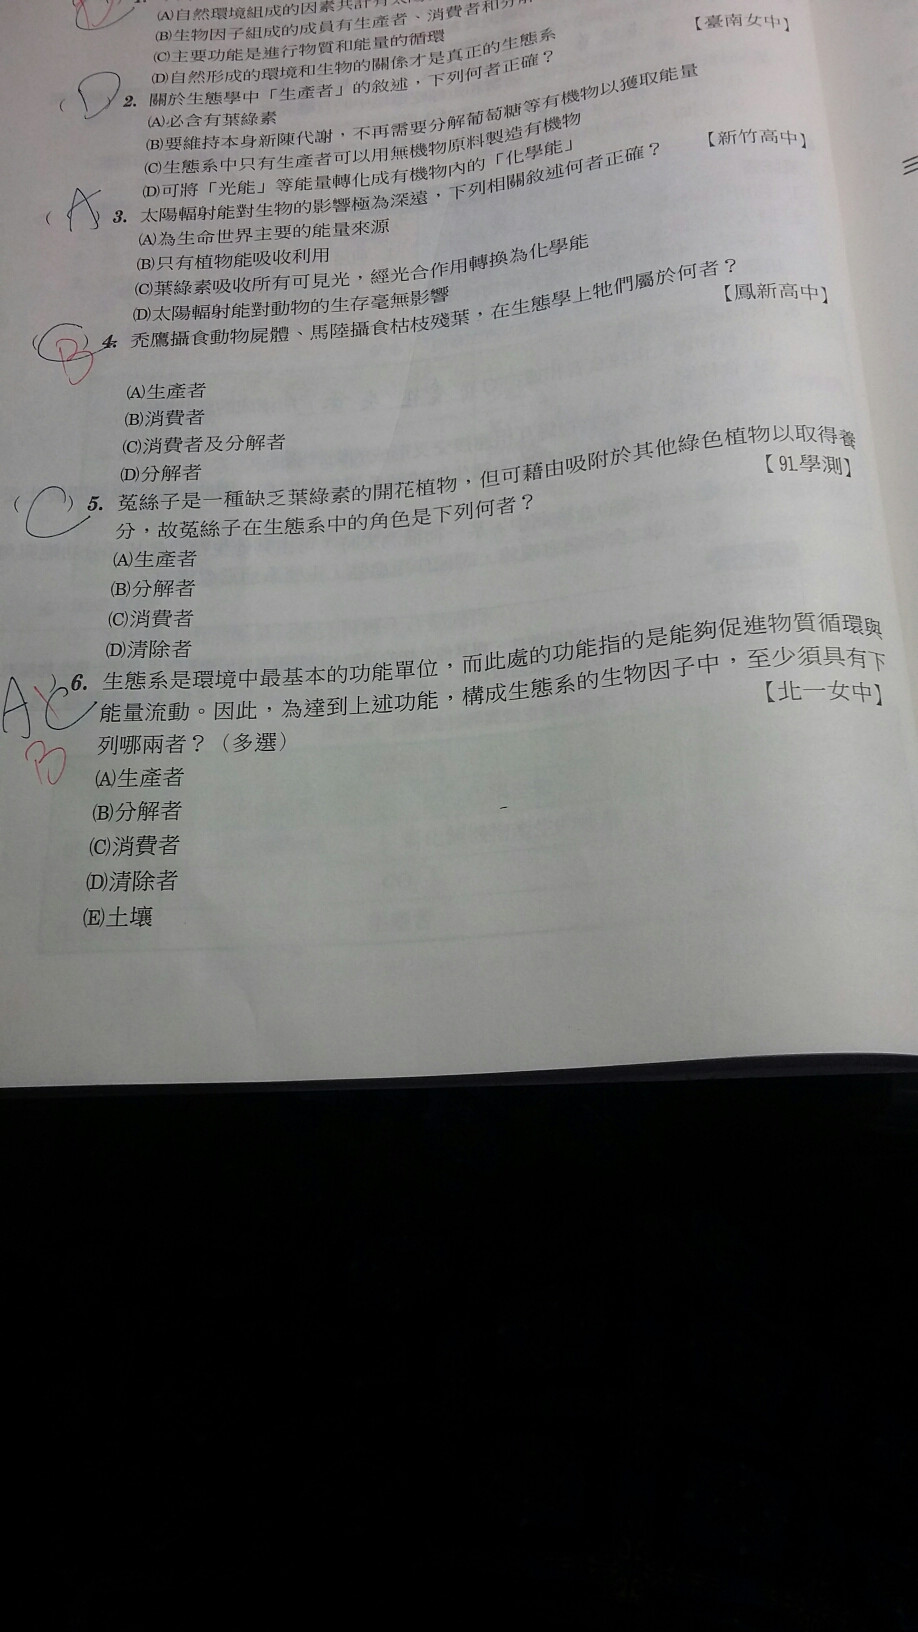 (A)自然環境組成的因素共計有太陽
(B)生物因子組成的成員有生產者、消費者和分解
(C)主要功能是進行物質和能量的循環
(D)自然形成的環境和生物的關係才是真正的生態系
【臺南女中】
(D) 2. 關於生態學中「生產者」的敘述,下列何者正確?
(A)必含有葉綠素
(B)要維持本身新陳代謝,不再需要分解葡萄糖等有機物以獲取能量
(C)生態系中只有生產者可以用無機物原料製造有機物
(D)可將「光能」等能量轉化成有機物內的「化學能」
【新竹高中】
(A) 3. 太陽輻射能對生物的影響極為深遠,下列相關敘述何者正確?
(A)為生命世界主要的能量來源
(B)只有植物能吸收利用
(C)葉綠素吸收所有可見光,經光合作用轉換為化學能
(D)太陽輻射能對動物的生存毫無影響
【鳳新高中】
(C) 4. 禿鷹攝食動物屍體、馬陸攝食枯枝殘葉,在生態學上牠們屬於何者?
B
(A)生產者
(B)消費者
(C)消費者及分解者
(D)分解者
【91學測】
(C) 5. 菟絲子是一種缺乏葉綠素的開花植物,但可藉由吸附於其他綠色植物以取得養
分,故菟絲子在生態系中的角色是下列何者?
(A)生產者
(B)分解者
(C)消費者
(D)清除者
AC 6. 生態系是環境中最基本的功能單位,而此處的功能指的是能夠促進物質循環與
能量流動。因此,為達到上述功能,構成生態系的生物因子中,至少須具有下
列哪兩者?(多選)
【北一女中】
B
(A)生產者
(B)分解者
(C)消費者
(D)清除者
(E)土壤